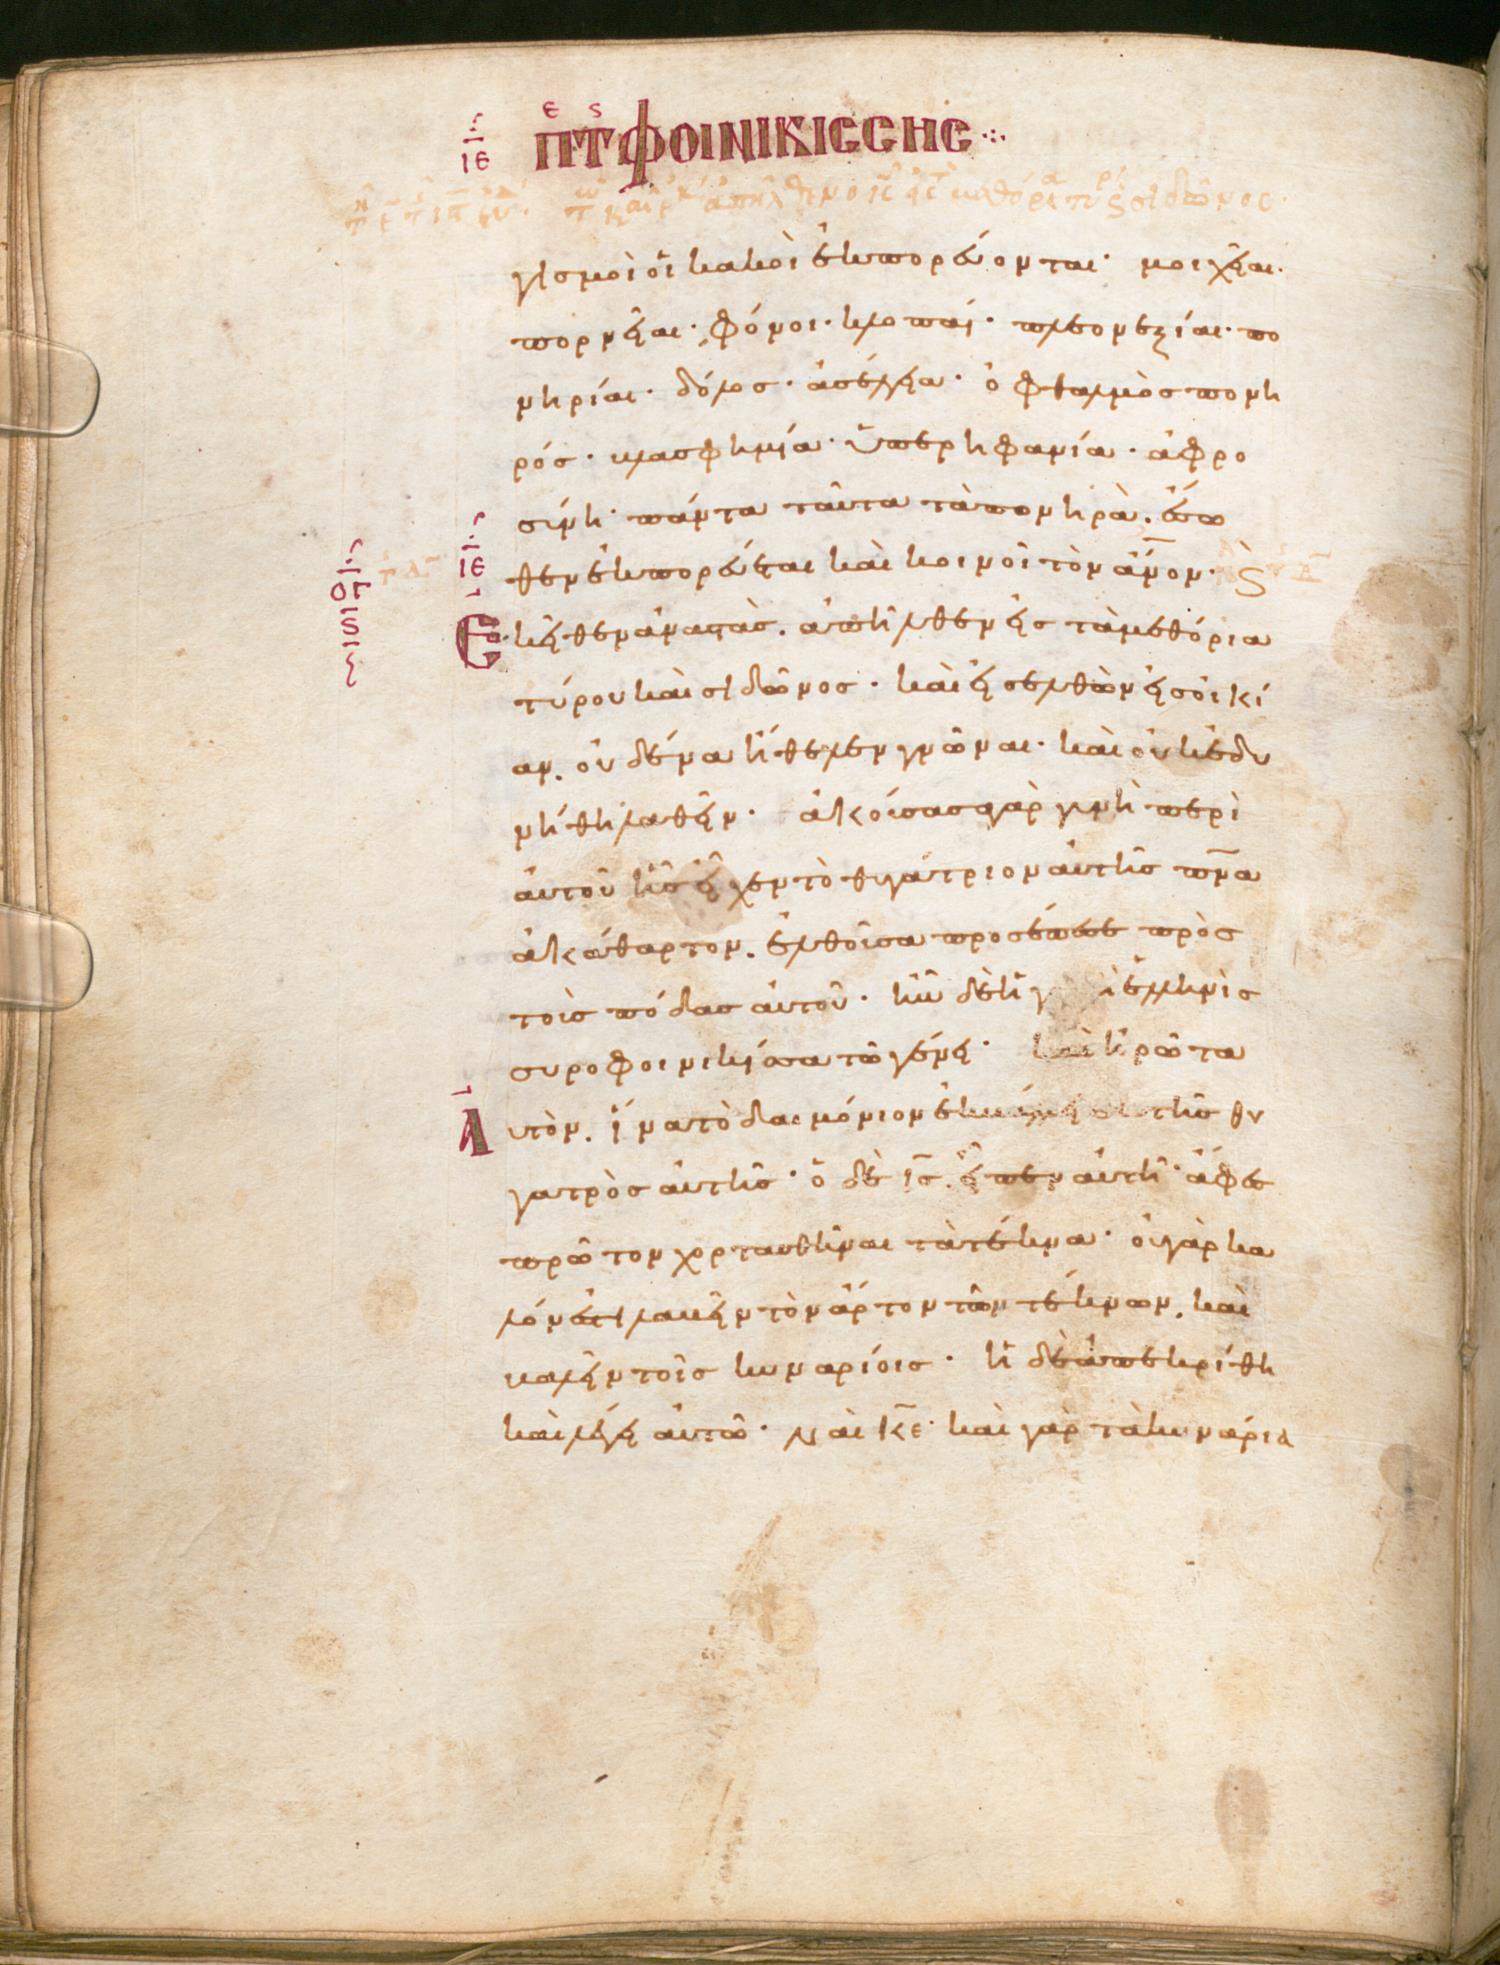 ιε ΠΕΤϚ ΦΟΙΝΙΚΙϹϹΗϹ
γισμοὶ οἱ κακοὶ ἐκπορεύονται· μοιχεῖαι·
πορνεῖαι· φόνοι· κλοπαί· πλεονεξίαι· πο
νηρίαι· δόλος· ἀσέλγεια· ὀφθαλμὸς πονη
ρός· βλασφημία· ὑπερηφανία· ἀφρο
σύνη· πάντα ταῦτα τὰ πονηρὰ, ἔσω
ιε θεν ἐκπορεύεται καὶ κοινοῖ τὸν ἄνον·
Ἐκεῖθεν ἀναστὰς, ἀπῆλθεν εἰς τὰ μεθόρια
τύρου καὶ σιδῶνος· καὶ εἰσελθὼν εἰς οἰκί
αν, οὐδένα ἤθελεν γνῶναι· καὶ οὐκ ἐδυ
νήθη λαθεῖν· ἀκούσασα γὰρ γυνὴ περὶ
αὐτοῦ ἧς εἶχεν τὸ θυγάτριον αὐτῆς πνα
ἀκάθαρτον, ἐλθοῦσα προσέπεσε πρὸς
τοὺς πόδας αὐτοῦ· ἦν δὲ ἡ ἑλληνὶς
συροφοινικίσσα τῶ γένει· καὶ ἠρώτα
Αὐτόν, ἵνα τὸ δαιμόνιον τῆς θυ
γατρὸς αὐτῆς· ὁ δὲ ις εἶπεν αὐτῆ· ἄφες
πρῶτον χορτασθῆναι τὰ τέκνα· οὐ γὰρ κα
λόν ἐστι λαβεῖν τὸν ἄρτον τῶν τέκνων, καὶ
βαλεῖν τοῖς κυναρίοις· ἡ δὲ ἀπεκρίθη
καὶ λέγει αὐτῶ· ναὶ κε· καὶ γὰρ τὰ κυνάρια